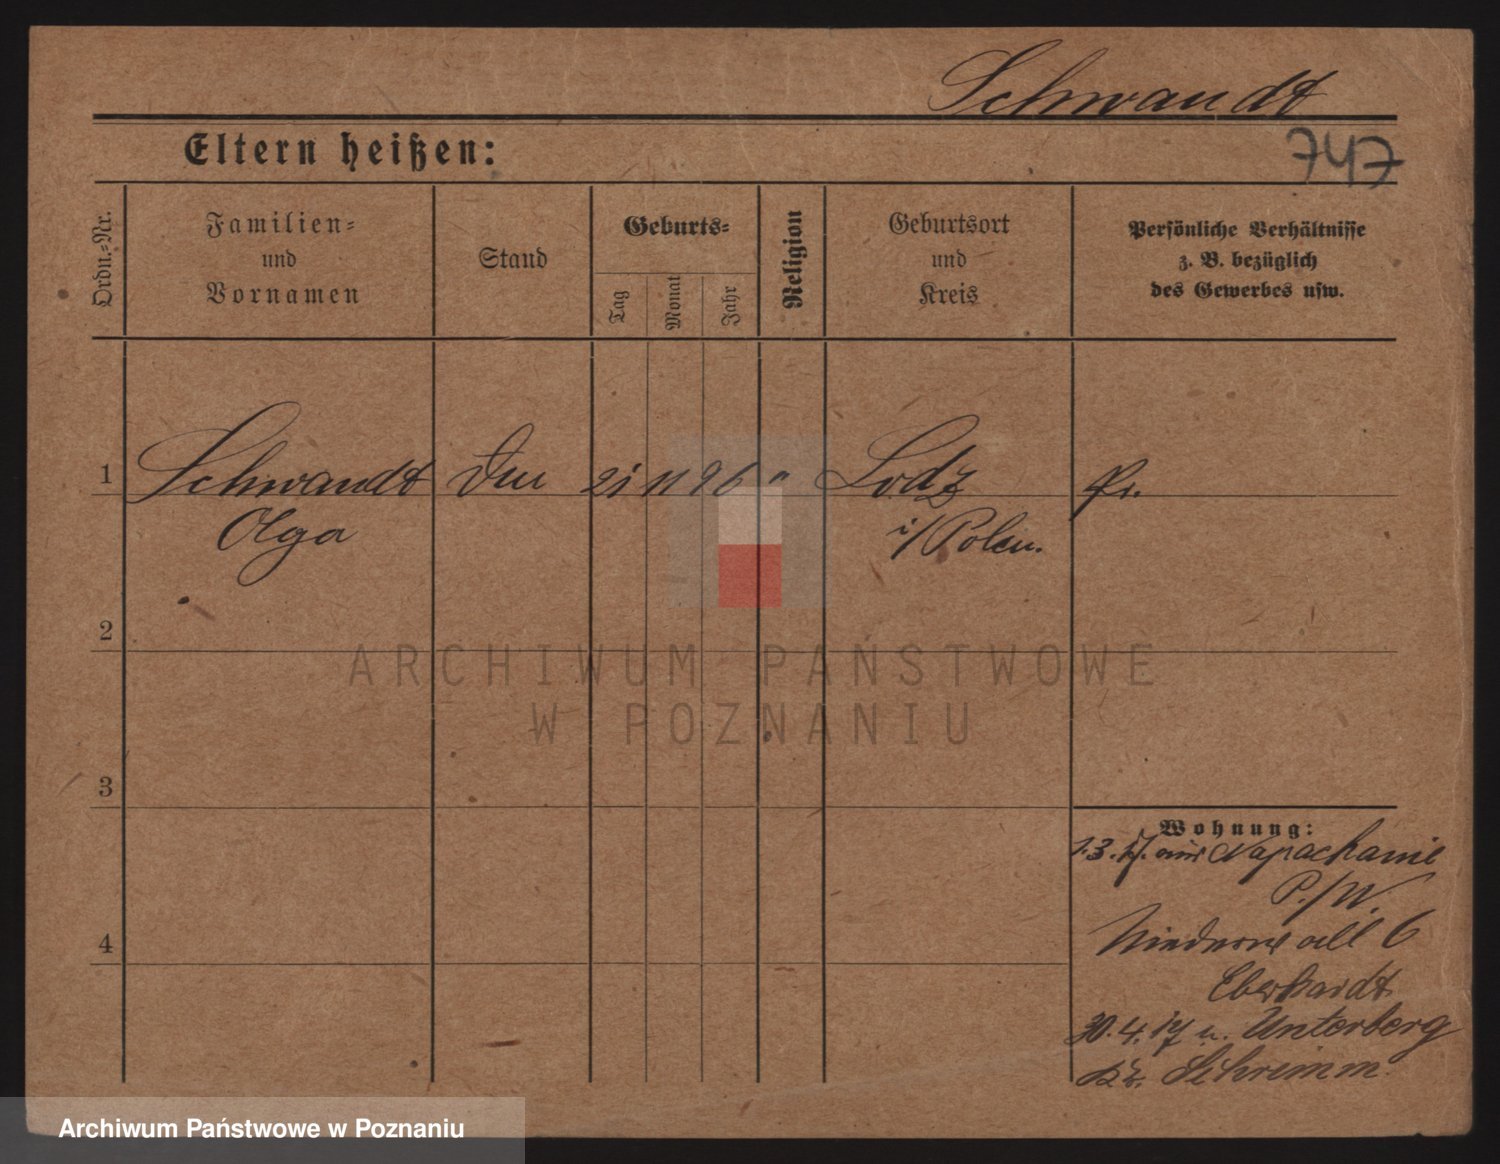 Schwandt
Eltern heißen:
747
Ordn.-Nr.
Familien-
und
Vornamen
Stand
Geburts-
Tag
Monat
Jahr
Religion
Geburtsort
und
Kreis
Persönliche Verhältnisse
z. B. bezüglich
des Gewerbes usw.
1 Schwandt 21 11 96 " Lodz Pr.
Olga i/Polen.
2
3
4
Wohnung:
1.3.17. aus Napachanie
P./W.
6
Eberhardt
30.4.17 n. Unterberg
Kr. Schrimm.
ARCHIWUM PAŃSTWOWE
W POZNANIU
Archiwum Państwowe w Poznaniu